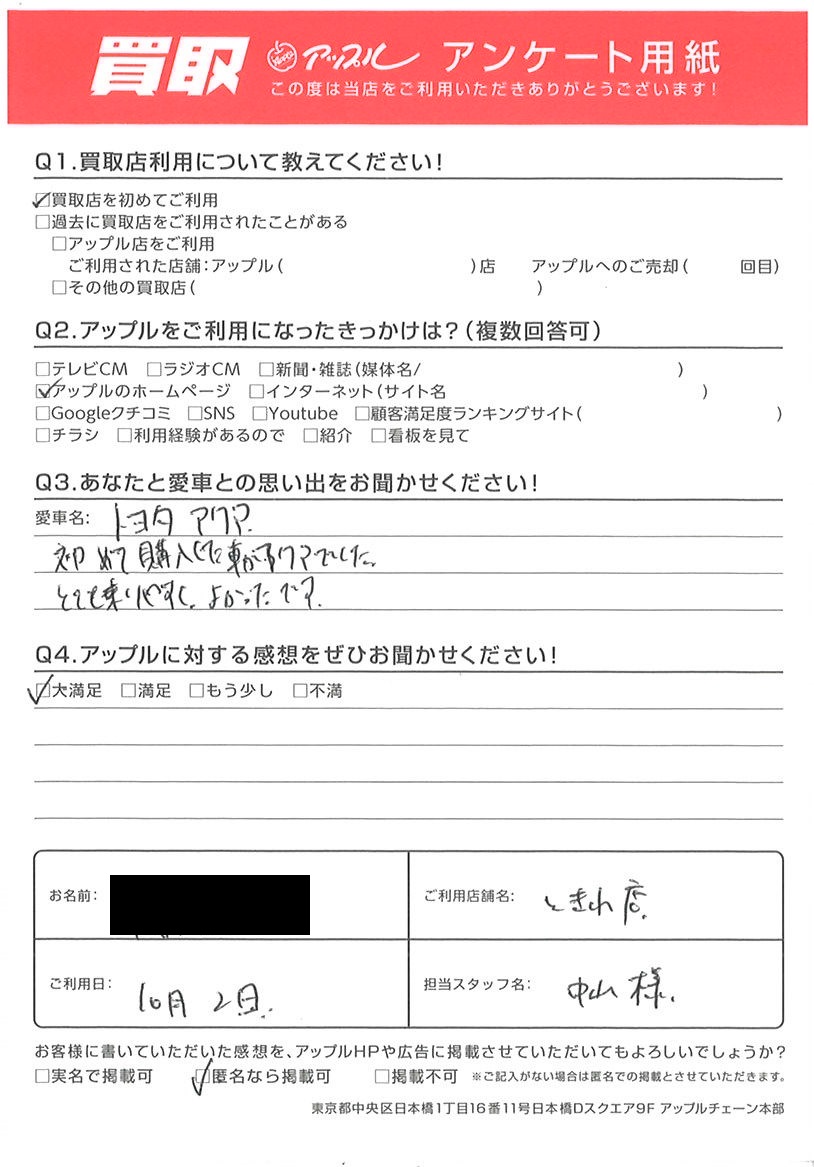 買取 アップル アンケート用紙
この度は当店をご利用いただきありがとうございます!
Q1.買取店利用について教えてください!
☑買取店を初めてご利用
□過去に買取店をご利用されたことがある
□アップル店をご利用
ご利用された店舗:アップル( )店 アップルへのご売却( 回目)
□その他の買取店( )
Q2.アップルをご利用になったきっかけは?(複数回答可)
□テレビCM □ラジオCM □新聞・雑誌(媒体名/ )
☑アップルのホームページ □インターネット(サイト名 )
□Googleクチコミ □SNS □Youtube □顧客満足度ランキングサイト( )
□チラシ □利用経験があるので □紹介 □看板を見て
Q3.あなたと愛車との思い出をお聞かせください!
愛車名: トヨタ アクア
初めて購入した車がアクアでした。
とても乗りやすく、よかったです。
Q4.アップルに対する感想をぜひお聞かせください!
☑大満足 □満足 □もう少し □不満
お名前:
ご利用店舗名: ときわ店
ご利用日: 10月2日
担当スタッフ名: 中山様
お客様に書いていただいた感想を、アップルHPや広告に掲載させていただいてもよろしいでしょうか?
□実名で掲載可 ☑匿名なら掲載可 □掲載不可 ※ご記入がない場合は匿名での掲載とさせていただきます。
東京都中央区日本橋1丁目16番11号日本橋Dスクエア9F アップルチェーン本部